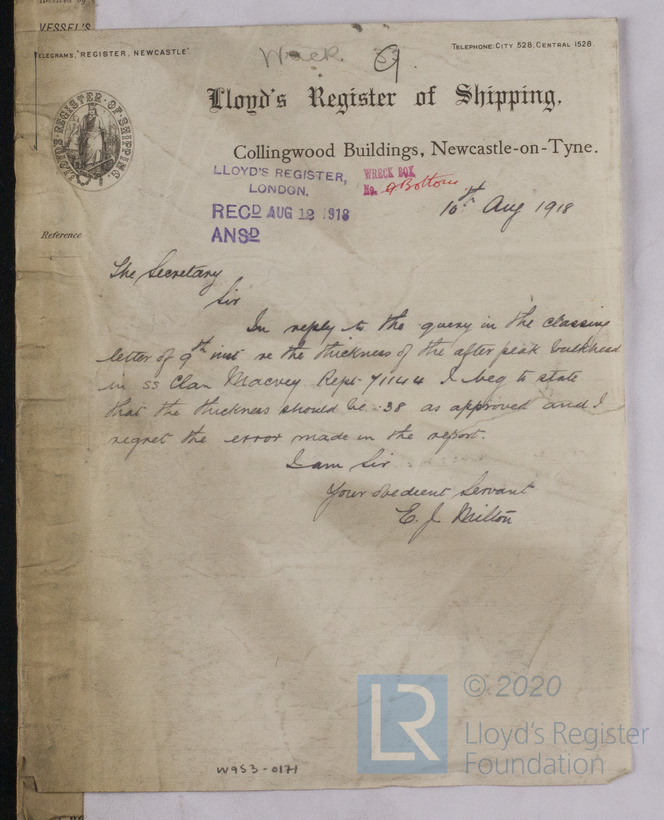 Received by
VESSEL'S
TELEGRAMS, "REGISTER, NEWCASTLE"
Wreck
9.
TELEPHONE: CITY 528, CENTRAL 1528
Lloyd's Register of Shipping.
LLOYD'S REGISTER OF SHIPPING
Collingwood Buildings, Newcastle-on-Tyne.
LLOYD'S REGISTER,
LONDON.
RECD AUG 12 1918
ANSD
WRECK BOX
No. 9 Bottom
10th Aug 1918
Reference
The Secretary
Sir
In reply to the query in the classing
letter of 9th inst re the thickness of the after peak bulkhead
in ss Clan Macvey Rept 71144 I beg to state
that the thickness should be .38 as approved and I
regret the error made in the report.
I am Sir
Your obedient Servant
E. J. Milton
W953-0171
LR
© 2020
Lloyd's Register
Foundation